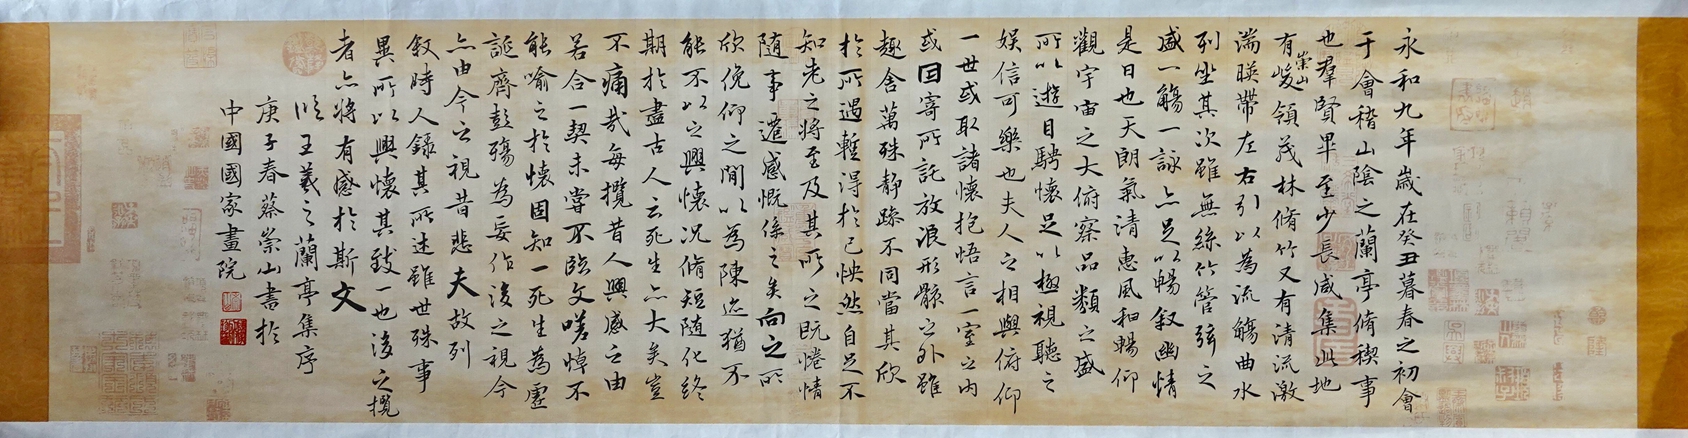 永和九年歲在癸丑暮春之初會
于會稽山陰之蘭亭脩稧事
也羣賢畢至少長咸集此地
有崇山峻領茂林脩竹又有清流激
湍暎帶左右引以為流觴曲水
列坐其次雖無絲竹管弦之
盛一觴一詠亦足以暢叙幽情
是日也天朗氣清惠風和暢仰
觀宇宙之大俯察品類之盛
所以遊目騁懷足以極視聽之
娛信可樂也夫人之相與俯仰
一世或取諸懷抱悟言一室之內
或因寄所託放浪形骸之外雖
趣舍萬殊靜躁不同當其欣
於所遇暫得於己怏然自足不
知老之將至及其所之既惓情
隨事遷感慨係之矣向之所
欣俛仰之閒以為陳迹猶不
能不以之興懷况脩短隨化終
期於盡古人云死生亦大矣豈
不痛哉每攬昔人興感之由
若合一契未嘗不臨文嗟悼不
能喻之於懷固知一死生為虛
誕齊彭殤為妄作後之視今
亦由今之視昔悲夫故列
叙時人錄其所述雖世殊事
異所以興懷其致一也後之攬
者亦將有感於斯文
臨王羲之蘭亭集序
庚子春蔡崇山書於
中國國家畫院